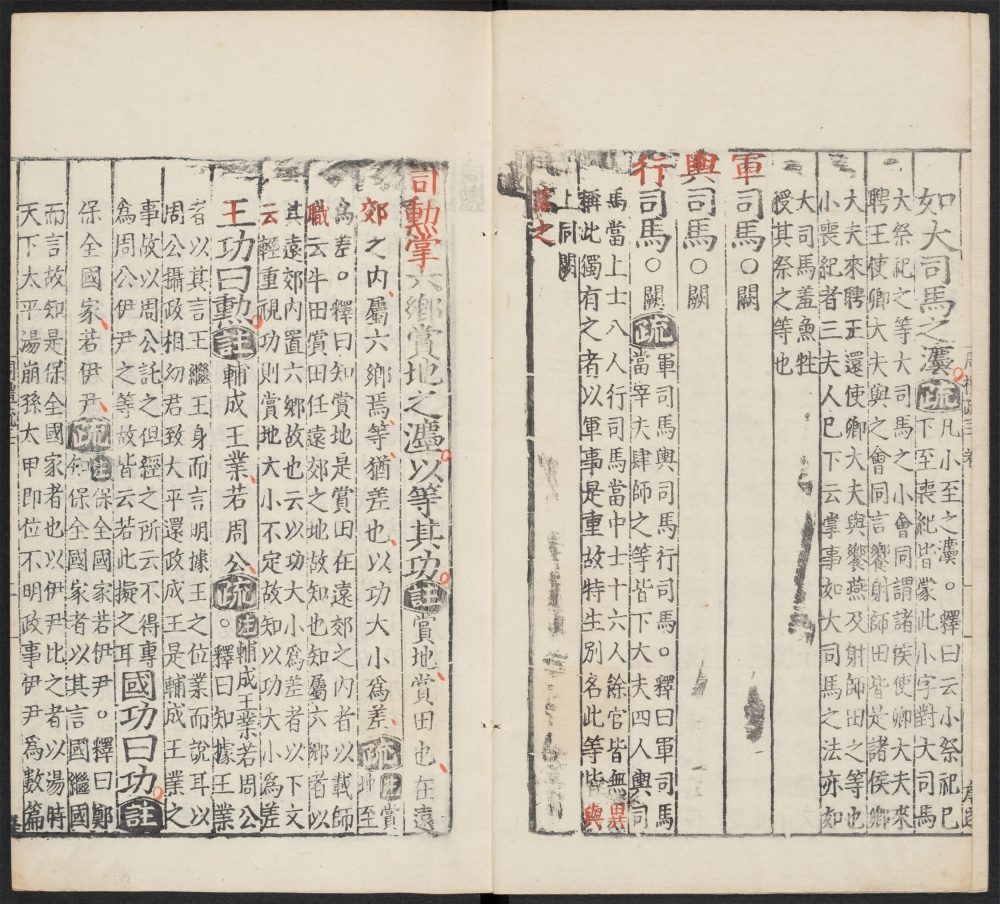 如大司馬之灋疏凡小至之灋。釋曰云小祭祀巳
下至喪紀皆蒙此小字對大司馬
大祭祀之等大司馬之小會同謂諸侯使卿大夫來
聘王使卿大夫與之會同言饗射師田皆是諸侯卿
大夫來聘王還使卿大夫與饗燕及射師田之等也
小喪紀者三夫人巳下云掌事如大司馬之法亦如
大司馬羞魚牲
授其祭之等也
軍司馬○闕
輿司馬○闕
行司馬○闕疏軍司馬輿司馬行司馬。釋曰軍司馬
當宰夫肆師之等皆下大夫四人輿司
馬當上士八人行司馬當中士十六人餘官皆無異
稱此獨有之者以軍事是重故特生別名此等皆與
上同闕
落之
司勳掌六鄉賞地之灋以等其功註賞地賞田也在遠
郊之内屬六鄉焉等猶差也以功大小爲差疏註
地至
爲差。釋曰知賞地是賞田在遠郊之内者以載師
職云牛田賞田任遠郊之地故知也知屬六鄉者以
其遠郊内置六鄉故也云以功大小爲差者以下文
云輕重視功則賞地大小不定故知以功大小爲差
王功曰勳註輔成王業若周公疏註輔成王業若周公
。釋曰知據王業
者以其言王繼王身而言明據王之位業而說耳以
周公攝政相幼君致大平還政成王是輔成王業之
事故以周公託之但經之所云不得專
爲周公伊尹之等故皆云若此擬之耳國功曰功註
保全國家若伊尹疏註保全國家若伊尹。釋曰鄭
知保全國家者以其言國繼國
而言故知是保全國家者也以伊尹比之者以湯時
天下太平湯崩孫太甲即位不明政事伊尹爲數篇